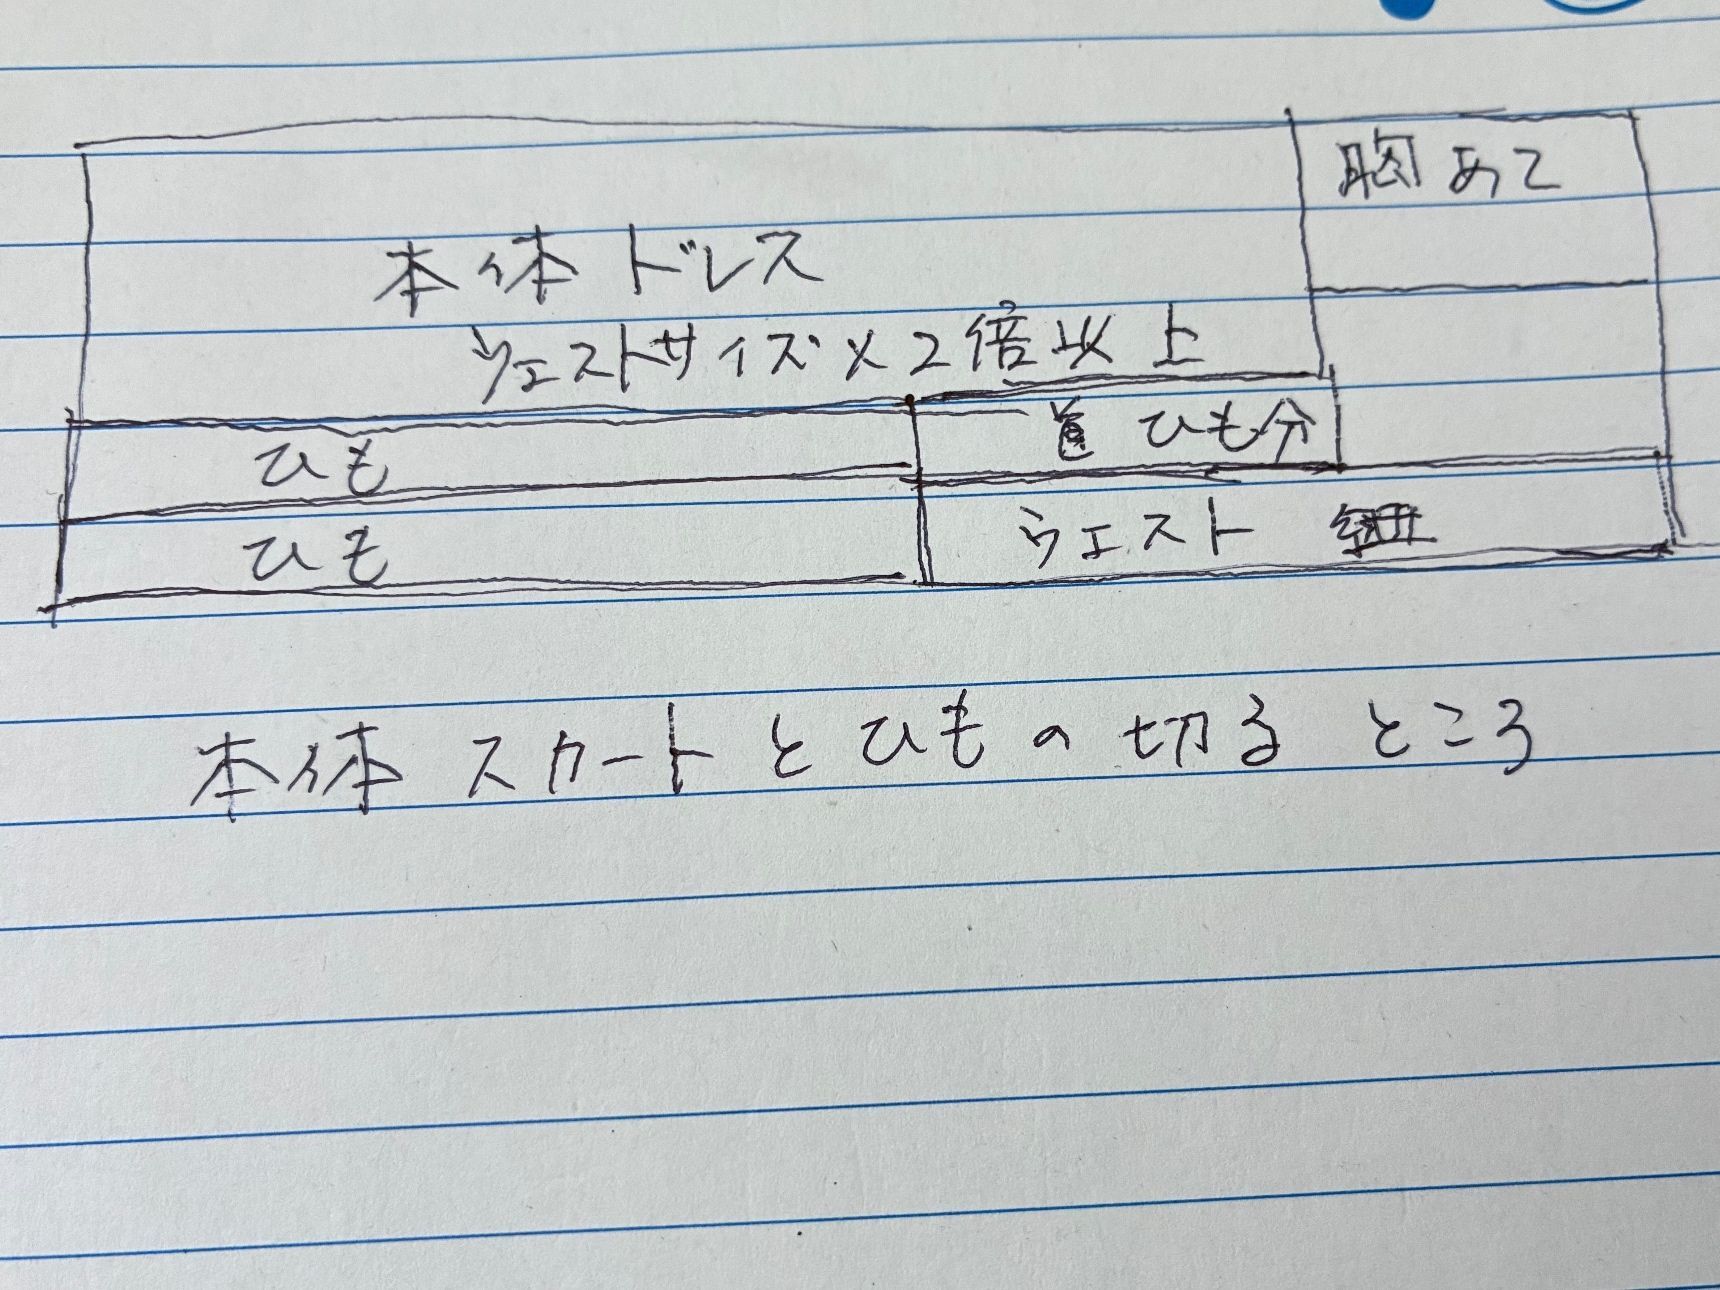 胸あて
本体ドレス
ウェストサイズ×2倍以上
首 ひも分
ひも
ひも
ウェスト 紐
本体スカートとひもの切るところ